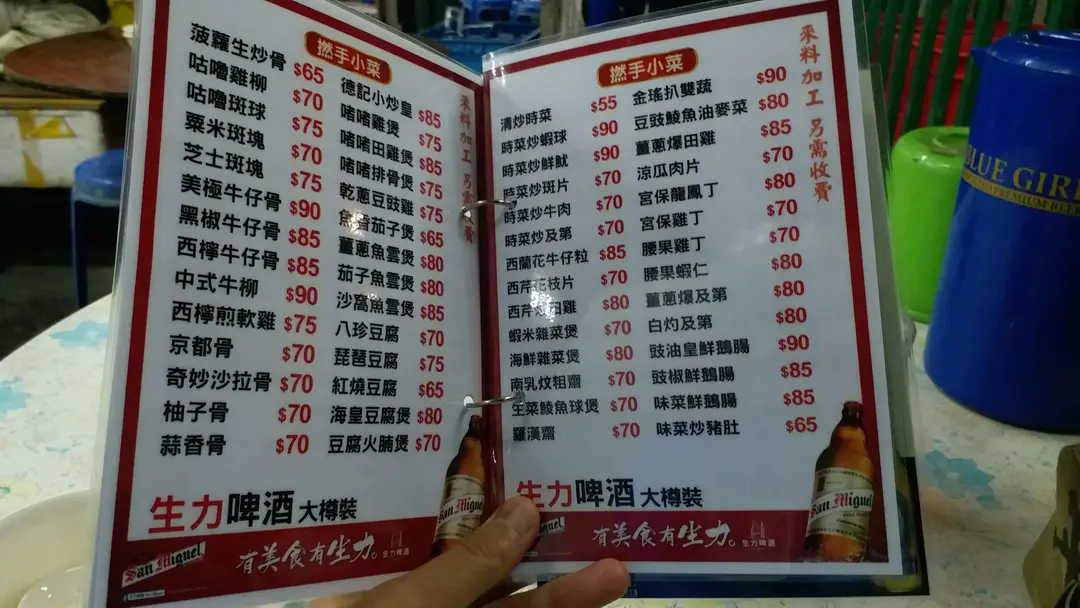 撚手小菜
菠蘿生炒骨 $65
咕嚕雞柳 $70
咕嚕斑球 $75
粟米斑塊 $70
芝士斑塊 $75
美極牛仔骨 $90
黑椒牛仔骨 $85
西檸牛仔骨 $85
中式牛柳 $90
西檸煎軟雞 $75
京都骨 $70
奇妙沙拉骨 $70
柚子骨 $70
蒜香骨 $70
德記小炒皇 $85
啫啫雞煲 $75
啫啫田雞煲 $85
啫啫排骨煲 $75
乾蔥豆豉雞 $75
魚香茄子煲 $65
薑蔥魚雲煲 $80
茄子魚雲煲 $80
沙窩魚雲煲 $85
八珍豆腐 $70
琵琶豆腐 $75
紅燒豆腐 $65
海皇豆腐煲 $80
豆腐火腩煲 $70
來料加工 另需收費
生力啤酒 大樽裝
San Miguel
有美食有生力。 生力啤酒
San Miguel
撚手小菜
清炒時菜 $55
時菜炒蝦球 $90
時菜炒鮮魷 $90
時菜炒斑片 $70
時菜炒牛肉 $70
時菜炒及第 $70
西蘭花牛仔粒 $85
西芹花枝片 $70
西芹炒田雞 $80
蝦米雜菜煲 $70
海鮮雜菜煲 $80
南乳炆粗齋 $70
生菜鯪魚球煲 $70
羅漢齋 $70
金瑤扒雙蔬 $90
豆豉鯪魚油麥菜 $80
薑蔥爆田雞 $85
涼瓜肉片 $70
宮保龍鳳丁 $80
宮保雞丁 $70
腰果雞丁 $70
腰果蝦仁 $80
薑蔥爆及第 $80
白灼及第 $80
豉油皇鮮鵝腸 $90
豉椒鮮鵝腸 $85
味菜鮮鵝腸 $85
味菜炒豬肚 $65
來料加工 另需收費
生力啤酒 大樽裝
有美食有生力。 生力啤酒
San Miguel
BLUE GIRL
PREMIUM BEER